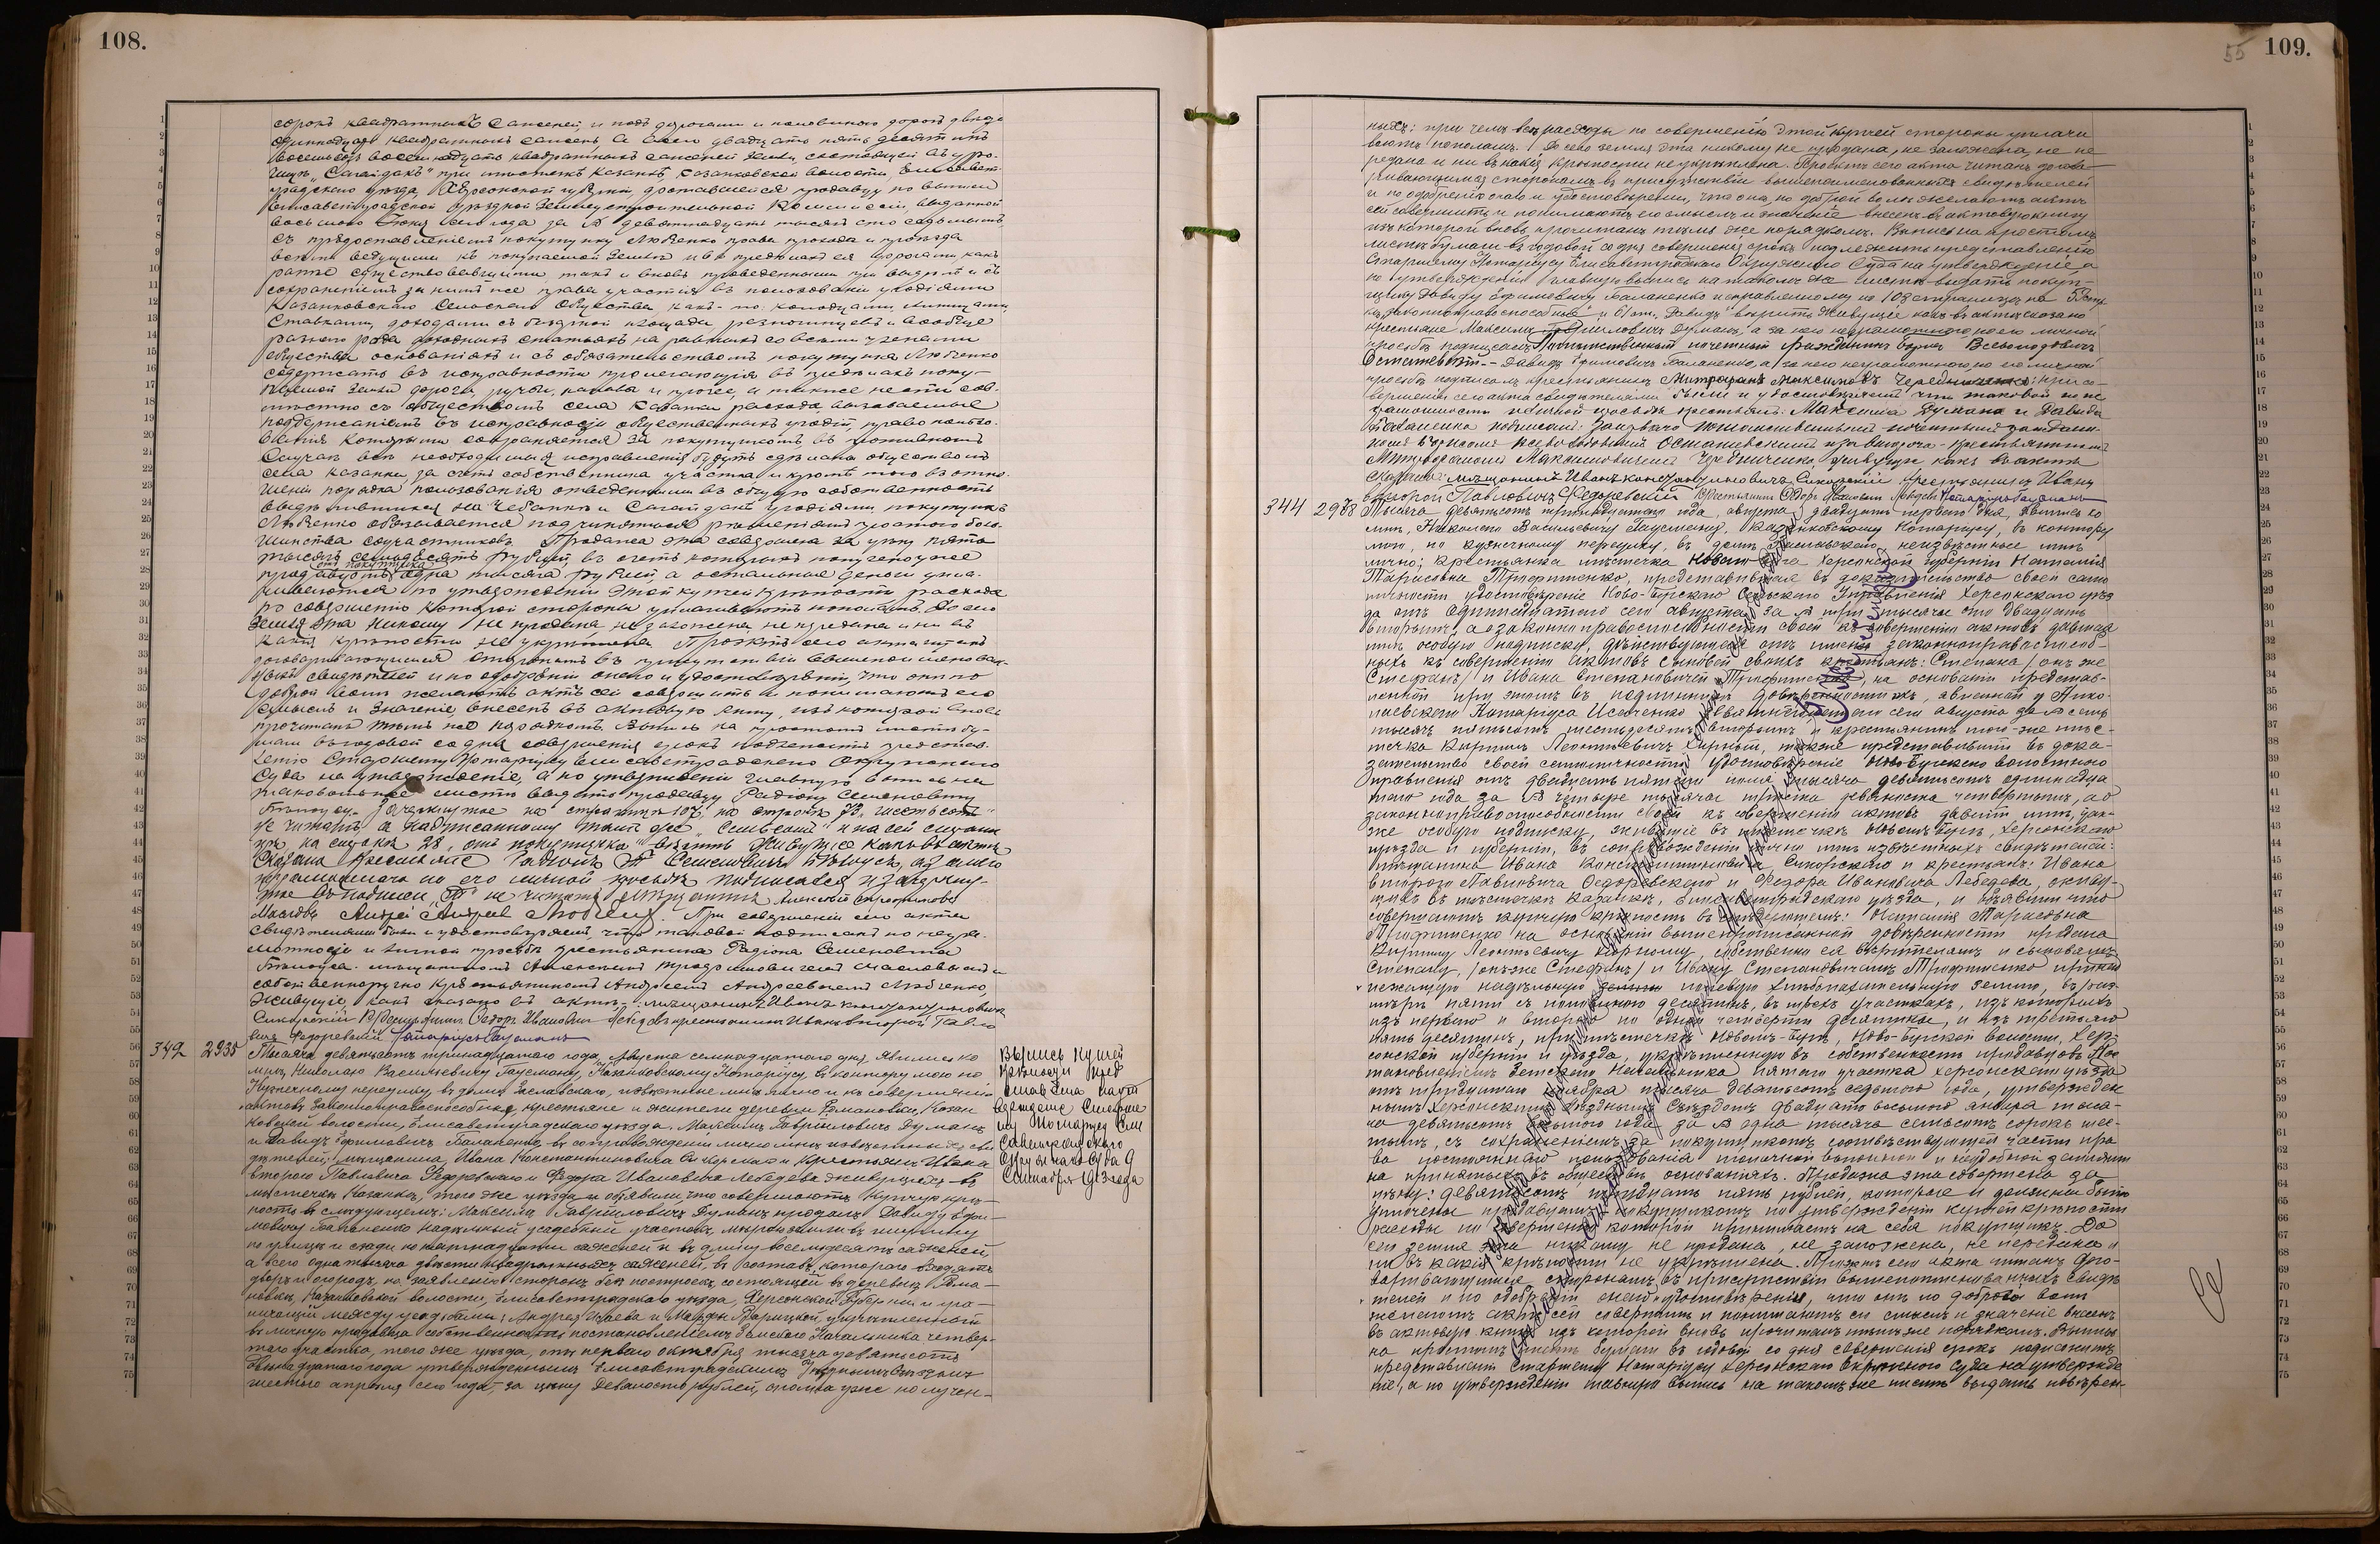 108.
сорокъ квадратныхъ саженей, и подъ дорогами и половиною дорогъ двѣсти
одиннадцать квадратныхъ сажень, а всего двадцать пять десятинъ
восемьсотъ восемнадцать квадратныхъ саженей земли, состоящей въ уро-
чищѣ „Сагайдакъ" при мѣстечкѣ Казанкѣ, Казанковской волости, Елисавет-
градскаго уѣзда, Херсонской губерніи, доставшейся продавцу по выписи
Елисаветградской Уѣздной Землеустроительной Коммиссіи, выданной
восьмого Іюня сего года за № девятнадцать тысячъ сто
съ предоставленіемъ покупщику Любченко права прохода и проѣзда
всѣми ведущими къ покупаемой землѣ и въ предѣлахъ ея дорогами, какъ
ранѣе существовавшими такъ и вновь проведенными при выдѣлѣ и съ
сохраненіемъ за нимъ же права участія въ пользованіи угодіями
Казанковскаго Сельскаго Общества, какъ-то: колодцами,
ставками, доходами съ базарной площади, и вообще
разнаго рода доходныхъ статьяхъ на равныхъ со всѣми членами
общества основаніяхъ и съ обязательствомъ покупщика Любченко
содержать въ исправности пролегающія въ предѣлахъ поку-
паемой земли дороги, ручьи, канавы и прочее, а также нести сов-
мѣстно съ обществомъ села Казанки расхода, вызываемые
поддержаніемъ въ исправности общественныхъ угодій, право пользо-
ванія которыми сохраняется за покупщикомъ, въ противномъ
случаѣ всѣ необходимыя исправленія будутъ сдѣланы обществомъ
села Казанки за счетъ собственника участка и кромѣ того въ отно-
шеніи порядка пользованія отведенными въ общую собственность
выдѣлившихся на Чебанкѣ и Сагайдакѣ угодіями покупщикъ
Любченко обязывается подчиняться рѣшеніямъ простого боль-
шинства соучастниковъ. Продажа эта совершена за цѣну пять
тысячъ семьдесятъ рублей, въ счетъ которыхъ получено уже
отъ покупщика
продавцомъ одна тысяча рублей, а остальные деньги упла-
чиваются по утвержденіи этой купчей крѣпости, расхода
по совершенію которой стороны уплачиваютъ пополамъ. До сего
земля эта никому не продана, не заложена, не предана и ни въ
какія крѣпости не укрѣплена. Проэктъ сего акта читанъ
договаривающимся сторонамъ въ присутствіи вышепоименован-
ныхъ свидѣтелей и по одобреніи онаго и удостовѣреніи, что они по
доброй волѣ желаютъ актъ сей совершить и понимаютъ его
смыслъ и значеніе, внесенъ въ актовую книгу, изъ которой вновь
прочитанъ тѣмъ же порядкомъ. Выпись на простомъ листѣ бу-
маги въ годовой со дня совершенія срокъ подлежитъ представ-
ленію Старшему Нотаріусу Елисаветградскаго Окружного
Суда на утвержденіе, а по утвержденіи главную выпись на
таковомъ же листѣ выдать продавцу Радіону Семеновичу
Бѣлоусу. Зачеркнутое на страницѣ 107, на строкѣ „шестьсотъ"
не читать, а надписанному тамъ же „семьсотъ" и на сей страни-
цѣ на строкѣ 28, „отъ покупщика" вѣрить. Живущіе какъ въ актѣ
сказано крестьяне Радіонъ Семеновичъ Бѣлоусъ, а за него
неграмотнаго по его личной просьбѣ подписался и зачеркну-
тое въ подписи не читать мѣщанинъ Алексѣй
Масловъ Андрей Андреев Любченко. При совершеніи сего акта
свидѣтелями были и удостовѣряемъ, что таковой подписанъ по негра-
мотности и личной просьбѣ крестьянина Радіона Семеновича
Бѣлоуса мѣщаниномъ Алексѣемъ Масловымъ и
собственноручно крестьяниномъ Андреемъ Андреевичемъ Любченко,
живущіе, какъ сказано въ актѣ: мѣщанинъ Иванъ Константиновичъ
Сикорскій Крестьянинъ Ѳедоръ Ивановичъ Лебедевъ крестьянинъ Иванъ второй Павло
вичъ Федоревскій Нотаріусъ Гаусманъ
342 2935 Тысяча девятьсотъ тринадцатаго года, Августа семнадцатаго дня, явились ко
мнѣ, Николаю Васильевичу Гаусману, Казанковскому Нотаріусу, въ контору мою по
Кузнечному переулку, въ домѣ Заславскаго, извѣстные мнѣ лично и къ совершенію
актовъ законноправоспособные, крестьяне и жители деревни Романовки, Казан
ковской волости, Елисаветградскаго уѣзда, Максимъ Гавриловичъ Думанъ
и Давидъ Ефимовичъ Балаценко, въ сопровожденіи лично мнѣ извѣстныхъ сви
дѣтелей: мѣщанина Ивана Константиновича Сикорскаго и крестьянъ: Ивана
второго Павловича Федоревскаго и Федора Ивановича Лебедева, живущихъ въ
мѣстечкѣ Казанкѣ, того же уѣзда и объявили, что совершаютъ купчую крѣ-
пость въ слѣдующемъ: Максимъ Гавриловичъ Думанъ продалъ Давиду Ефи-
мовичу Балаценко надѣльный усадебный участокъ, мѣрою земли въ ширину
по улицѣ и сзади по пятнадцати саженей и въ длину восемьдесятъ саженей,
а всего одна тысяча двѣсти квадратныхъ саженей, въ составъ котораго входятъ
дворъ и огородъ, по заявленію сторонъ безъ построекъ, состоящій въ деревнѣ Рома-
новкѣ, Казанковской волости, Елисаветградскаго уѣзда, Херсонской Губерніи и гра-
ничащій между усадьбами: Андрея Исаева и Марфы Варицкой, укрѣпленный
въ личную продавца собственность постановленіемъ Земскаго Начальника четвер-
таго участка, того же уѣзда, отъ перваго октября тысяча девятьсотъ
двѣнадцатаго года утвержденнымъ Елисаветградскимъ Уѣзднымъ Съѣздомъ
шестого апрѣля сего года, за цѣну девяносто рублей, сполна уже получен-
Выпись купчей
крѣпости пред
ставлена на ут
вержденіе Старше
му Нотаріусу Ели
саветградскаго
Окружнаго Суда 9
Сентября 1913 года
109.
55
ныхъ: при чемъ всѣ расходы по совершенію этой купчей стороны уплачи
ваютъ пополамъ. До сего земля эта никому не продана, не заложена, не пе
редана и ни въ какія крѣпости не укрѣплена. Проэктъ сего акта читанъ догова-
ривающимся сторонамъ въ присутствіи вышепоименованныхъ свидѣтелей
и по одобреніи онаго и удостовѣреніи, что они, по доброй волѣ желаютъ актъ
сей совершить и понимаютъ его смыслъ и значеніе внесенъ въ актовую книгу
изъ которой вновь прочитанъ тѣмъ же порядкомъ. Выпись на простомъ
листѣ бумаги въ годовой со дня совершенія срокъ подлежитъ представленію
Старшему Нотаріусу Елисаветградскаго Окружного Суда на утвержденіе, а
по утвержденіи главную выпись на таковомъ же листѣ выдать покуп-
щику Давиду Ефимовичу Балаценко и исправленному на 108 страницѣ на
„законноправоспособные" и 61 ст. „Давидъ" вѣрить. Живущіе какъ въ актѣ сказано
крестьяне Максимъ Гавриловичъ Думанъ, а за него неграмотнаго по его личной
просьбѣ подписался потомственный почетный гражданинъ Борисъ Всеволодовичъ
Осташевскій. - Давидъ Ефимовичъ Балаценко, а за него неграмотнаго по его личной
просьбѣ подписалъ крестьянинъ Митрофанъ Максимовъ Чередниченко; при со-
вершеніи сего акта свидѣтелями были и удостовѣряемъ что таковой по не
грамотности и личной просьбѣ крестьянъ: Максима Думана и Давида
Балаценка подписали: за перваго потомственный почетный граждани-
номъ Борисомъ Всеволодовичемъ Осташевскимъ и за второго - крестьяниномъ
Митрофаномъ Максимовичемъ Чередниченко, живущіе какъ въ актѣ
сказано: мѣщанинъ Иванъ Константиновичъ Сикорскій крестьянинъ Иванъ
второй Павловичъ Федоревскій Крестьянинъ Ѳедоръ Ивановичъ Лебедевъ Нотаріусъ Гаусманъ
344 2978 Тысяча девятьсотъ тринадцатаго года, августа двадцать перваго дня, явились ко
мнѣ, Николаю Васильевичу Гаусману, Казанковскому Нотаріусу, въ контору
мою, по кузнечному переулку, въ домѣ Заславскаго, неизвѣстные мнѣ
лично: крестьянка мѣстечка Новаго Буга Херсонской губерніи Наталія
Тарасовна Трофименко, представившая въ доказательство своей само
личности удостовѣреніе Ново-Бугскаго Сельскаго Управленія Херсонскаго уѣз
да отъ одиннадцатаго сего августа за № три тысячи сто двадцать
вторымъ, а о законноправоспособности своей къ совершенію актовъ давшая
мнѣ особую подписку, дѣйствующая отъ имени законноправоспособ-
ныхъ къ совершенію актовъ сыновей своихъ крестьянъ: Степана /онъ же
Стефанъ/ и Ивана Степановичей Трофименко, на основаніи представ-
ленной при этомъ въ подлинникѣ довѣренности ихъ, явленной у Нико-
лаевскаго Нотаріуса Исаченко девятнадцатаго сего августа за № семь
тысячъ пятьсотъ шестьдесятъ вторымъ и крестьянинъ того-же мѣс-
течка Кириллъ Леонтьевичъ Хирный, также представившій въ дока-
зательство своей самоличности удостовѣреніе Ново-Бугскаго волостного
правленія отъ двадцать пятаго іюня тысяча девятьсотъ одиннадца
таго года за № четыре тысячи триста девяносто четвертымъ, а о
законноправоспособности своей къ совершенію актовъ давшій мнѣ, так-
же особую подписку, живущіе въ мѣстечкѣ Новомъ-Бугѣ, Херсонскаго
уѣзда и губерніи, въ сопровожденіи лично мнѣ извѣстныхъ свидѣтелей:
мѣщанина Ивана Константиновича Сикорскаго и крестьянъ: Ивана
второго Павловича Федоревскаго и Федора Ивановича Лебедева, живу-
щихъ въ мѣстечкѣ Казанкѣ, Елисаветградскаго уѣзда, и объявили что
совершаютъ купчую крѣпость въ слѣдующемъ: Наталія Тарасовна
Трофименко на основаніи вышепрописанной довѣренности продала
Кириллу Леонтьевичу Хирному, собственно ея вѣрителямъ и сыновьямъ
Степану, /онъ же Стефанъ/ и Ивану Степановичамъ Трофименко принад
лежащую надѣльную полевую хлѣбопахатную землю, въ раз-
мѣрѣ пяти съ половиною десятинъ, въ трехъ участкахъ, изъ которыхъ
изъ перваго и второго по одной четверти десятины, и изъ третьяго
пять десятинъ, при мѣстечкѣ Новомъ-Бугѣ, Ново-Бугской волости, Хер-
сонской губерніи и уѣзда, укрѣпленную въ собственность продавцовъ Пос
тановленіемъ Земскаго Начальника пятаго участка Херсонскаго уѣзда
отъ тридцатаго ноября тысяча девятьсотъ седьмого года, утвержден
нымъ Херсонскимъ Уѣзднымъ Съѣздомъ двадцать восьмого января тыся-
ча девятьсотъ восьмого года за № одна тысяча семьсотъ сорокъ шес-
тымъ, съ сохраненіемъ за покупщикомъ соотвѣтствующей части пра
ва постояннаго пользованія толочной выгонной и неудобной землями
на принятыхъ въ обществѣ основаніяхъ. Продажа эта совершена за
цѣну: девятьсотъ тридцать пять рублей, которые и должны быть
уплочены продавцамъ покупщикомъ по утвержденіи купчей крѣпости
расходы по совершенію которой принимаетъ на себя покупщикъ. До
сего земля эта никому не продана, не заложена, не передана и
ни въ какія крѣпости не укрѣплена. Проэктъ сего акта читанъ дого-
варивающимся сторонамъ въ присутствіи вышепоименованныхъ свидѣ
телей и по одобреніи онаго и удостовѣреніи, что они по доброй волѣ
желаютъ актъ сей совершить и понимаютъ его смыслъ и значеніе внесенъ
въ актовую книгу изъ которой вновь прочитанъ тѣмъ же порядкомъ. Выпись
на простомъ листѣ бумаги въ годовой со дня совершенія срокъ подлежитъ
представленію Старшему Нотаріусу Херсонскаго Окружного Суда на утвержде
ніе, а по утвержденіи главную выпись на таковомъ же листѣ выдать повѣрен-